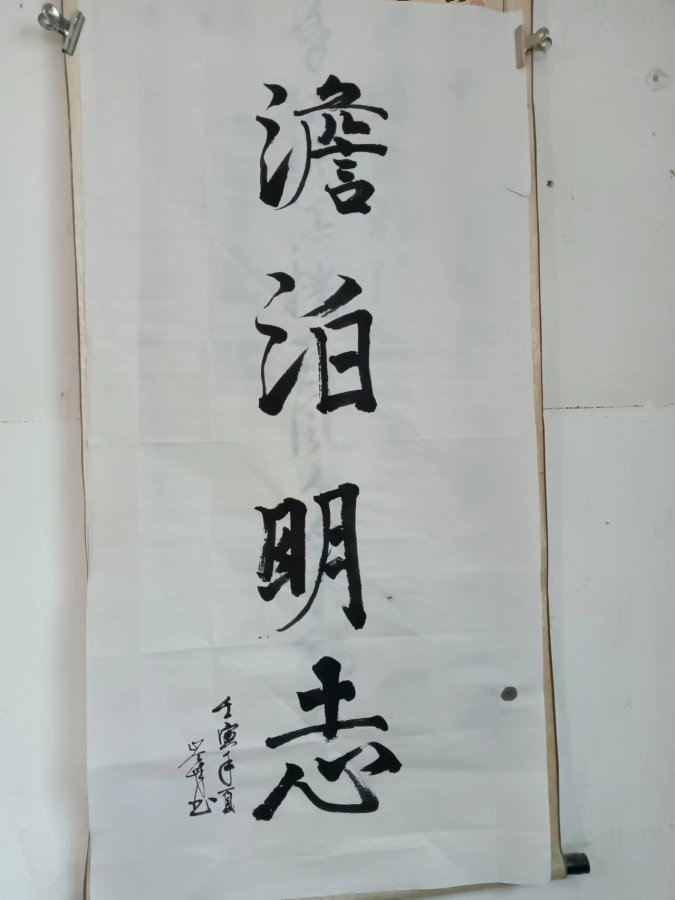 澹泊明志
壬寅年夏
书